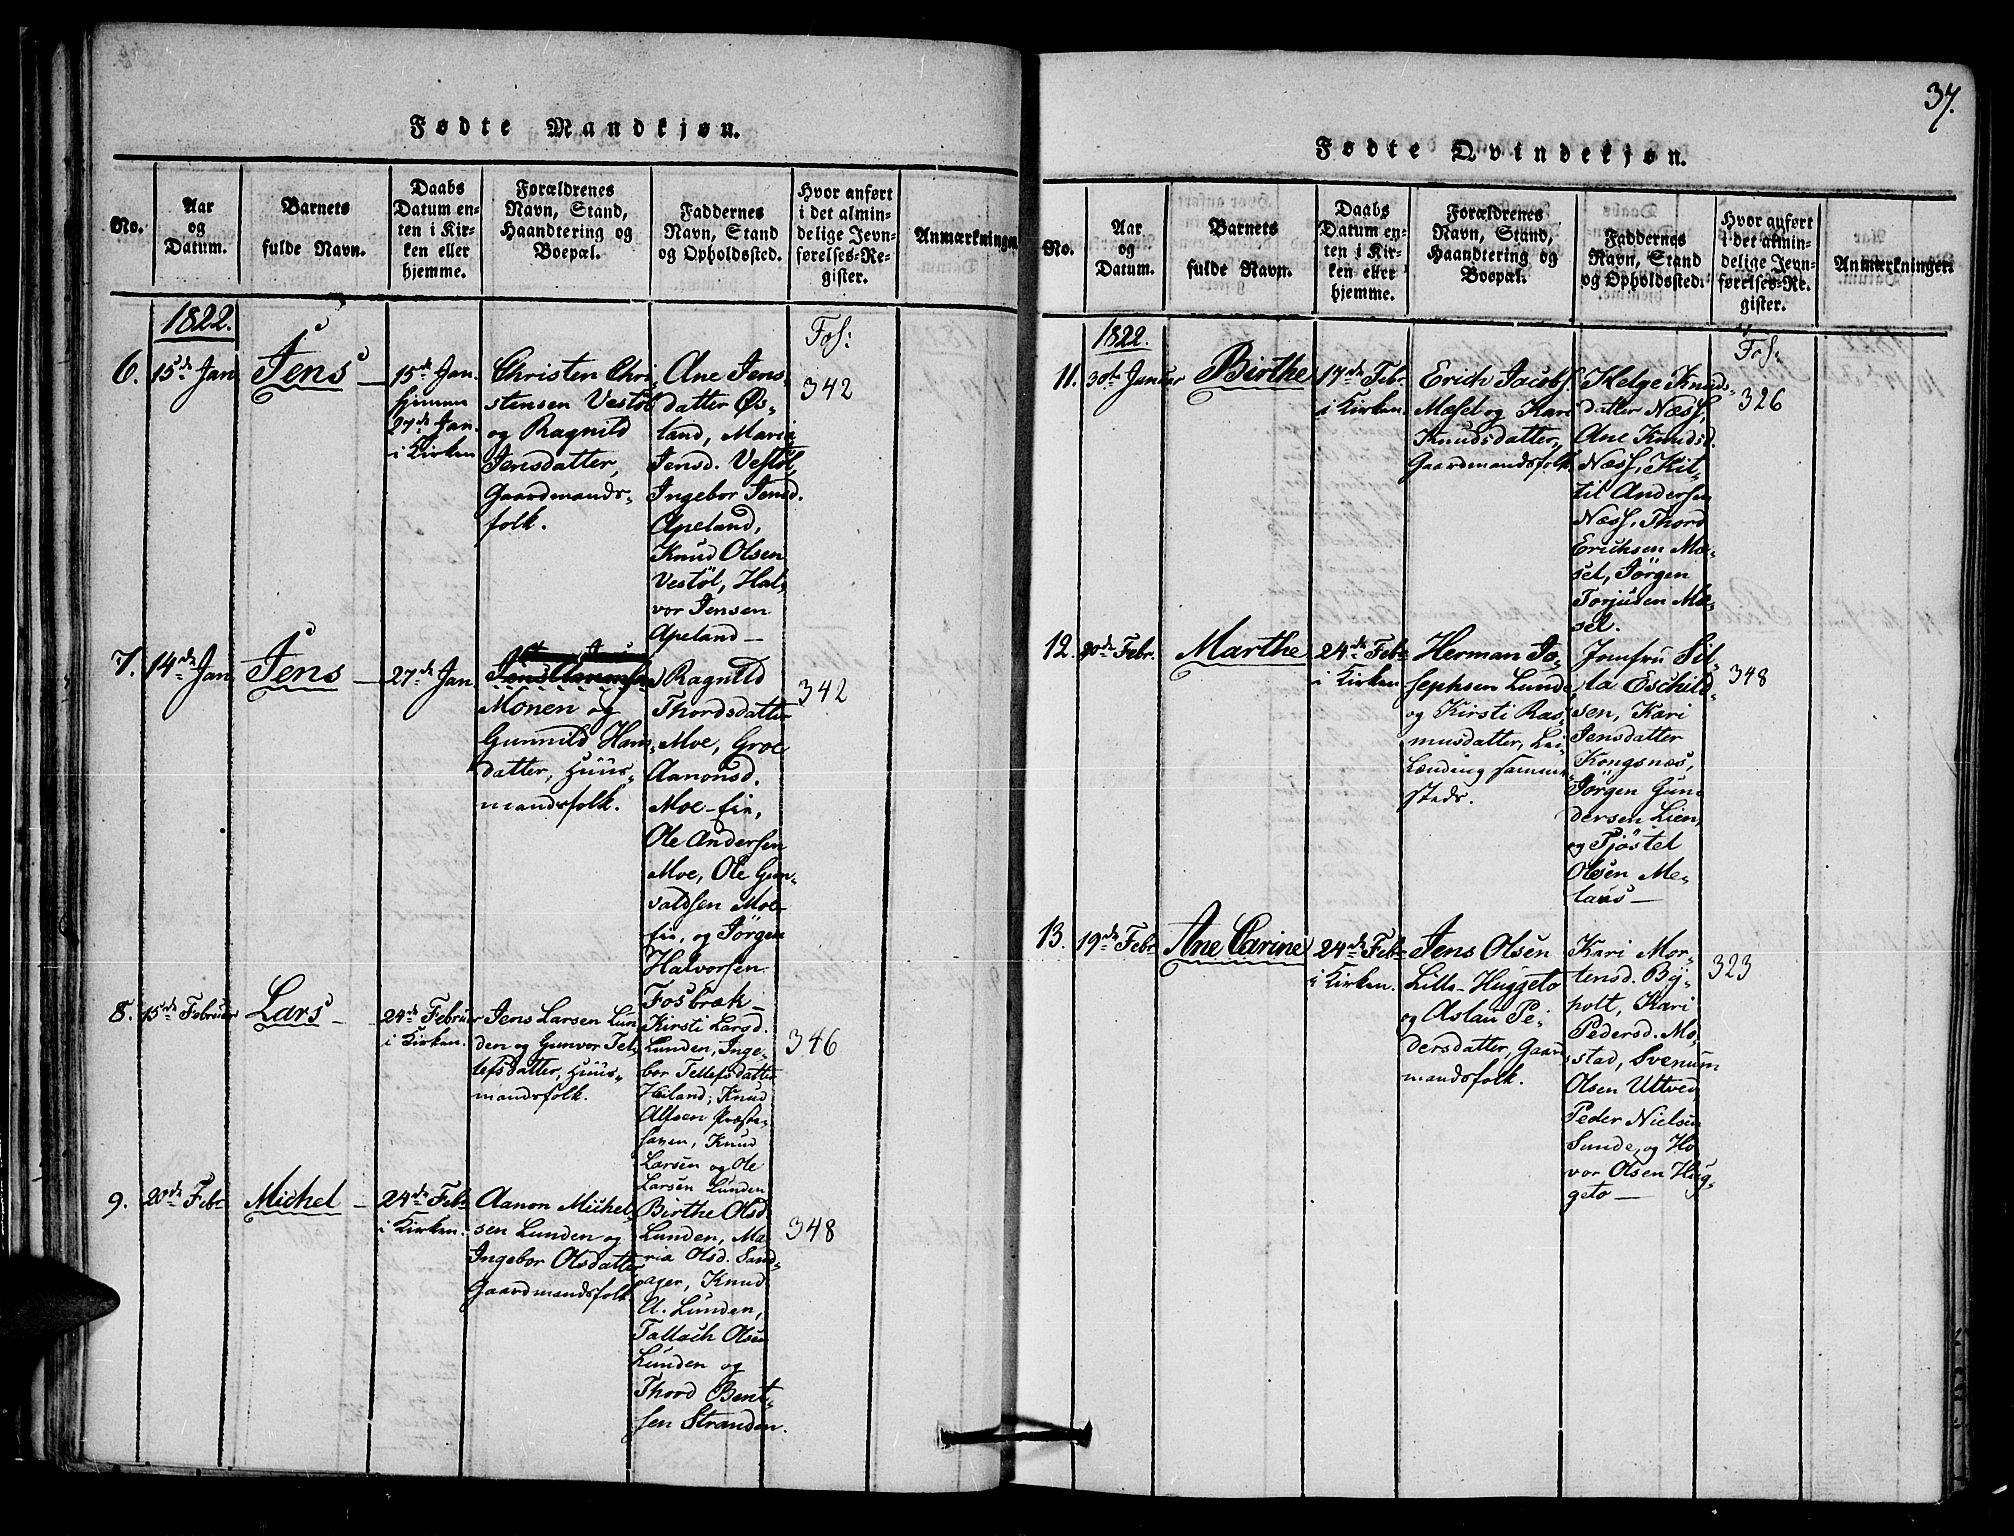 Fødte Mandkjøn.
No.
Aar
og
Datum.
Barnets
fulde Navn.
Daabs
Datum en-
ten i Kir-
ken eller
hjemme.
Forældrenes
Navn, Stand,
Haandtering og
Boepæl.
Faddernes
Navn, Stand
og Opholdssted.
Hvor anført
i det almin-
delige Jevn-
førelses-Re-
gister.
Anmærkninger
1822.
6.
15de Jan
Jens
15de Jan.
hjemme
27de Jan.
i Kirken
Christen Chri-
stensen Vestøl
og Ragnild
Jensdatter,
Gaardmands-
folk.
Ane Jens-
datter Øs-
land, Maria
Jensd. Vestøl,
Ingebor Jensd.
Apeland,
Knud Olsen
Vestøl, Hal-
vor Jensen
Apeland —
Fol:
342
7.
14de Jan
Jens
27de Jan
Jens Aanonsen
Monen og
Gunnild Hans-
datter, Huus-
mandsfolk.
Ragnild
Thordsdatter
Moe, Groe
Aanonsd.
Moe-Eie,
Ole Andersen
Moe, Ole Gun-
valdsen Moe-
Eie, og Jørgen
Halvorsen
Fosbræk —
342
8.
15de Februar
Lars
24de Februar
i Kirken.
Jens Larsen Lun-
den og Gunvor Tel-
lefsdatter, Huus-
mandsfolk.
Kirsti Larsd.
Lunden, Inge-
bor Tellefsdatter
Heiland; Knud
Alfsen
Knud
Larsen og Ole
Larsen Lunden
346
9.
20de Febr
Michel
24de Febr
i Kirken.
Aanon Michel-
sen Lunden og
Ingebor Olsdatter
Gaardmandsfolk.
Birthe Olsd.
Lunden, Ma-
ria Olsd. Sand-
ager, Knud
A. Lunden,
Tallach Olsen
Lunden og
Thord Bent-
sen Stranden.
348
37.
Fødte Qvindekjøn.
No.
Aar
og
Datum.
Barnets
fulde Navn.
Daabs
Datum en-
ten i Kir-
ken eller
hjemme.
Forældrenes
Navn, Stand,
Haandtering og
Boepæl.
Faddernes
Navn, Stand
og Opholdssted.
Hvor anført
i det almin-
delige Jevn-
førelses-Re-
gister.
Anmærkninger.
1822.
11.
30te Januar
Birthe
17de Febr.
i Kirken.
Erich Jacobs.
Mæsel og Kari
Knudsdatter,
Gaardmandsfolk.
Helge Knuds-
datter Næss,
Ane Knudsd.
Næss, Kit-
til Andersen
Næss, Thord
Erichsen Mæ-
sel, Jørgen
Torjusen Mæ-
sel.
Fol:
326
12.
20de Febr.
Marthe
24de Febr
i Kirken
Herman Jo-
sephsen Lunde
og Kirsti Ras-
musdatter, Lei-
lænding samme-
steds.
Jomfru Sil-
la Eschild-
sen, Kari
Jensdatter
Kongsnæs,
Jørgen Gun-
dersen Lien,
og Tjøstel
Olsen Me-
laas —
348
13.
19de Febr
Ane Carine
24de Febr
i Kirken.
Jens Olsen
Lille-Huggeto
og Aslau Pe-
dersdatter, Gaard-
mandsfolk.
Kari Mor-
tensd. Byʼ
holt, Kari
Pedersd. Mo-
stad, Svenum
Olsen Uttved,
Peder Nielsen
Sunde, og Ho-
vor Olsen Hug-
geto —
323